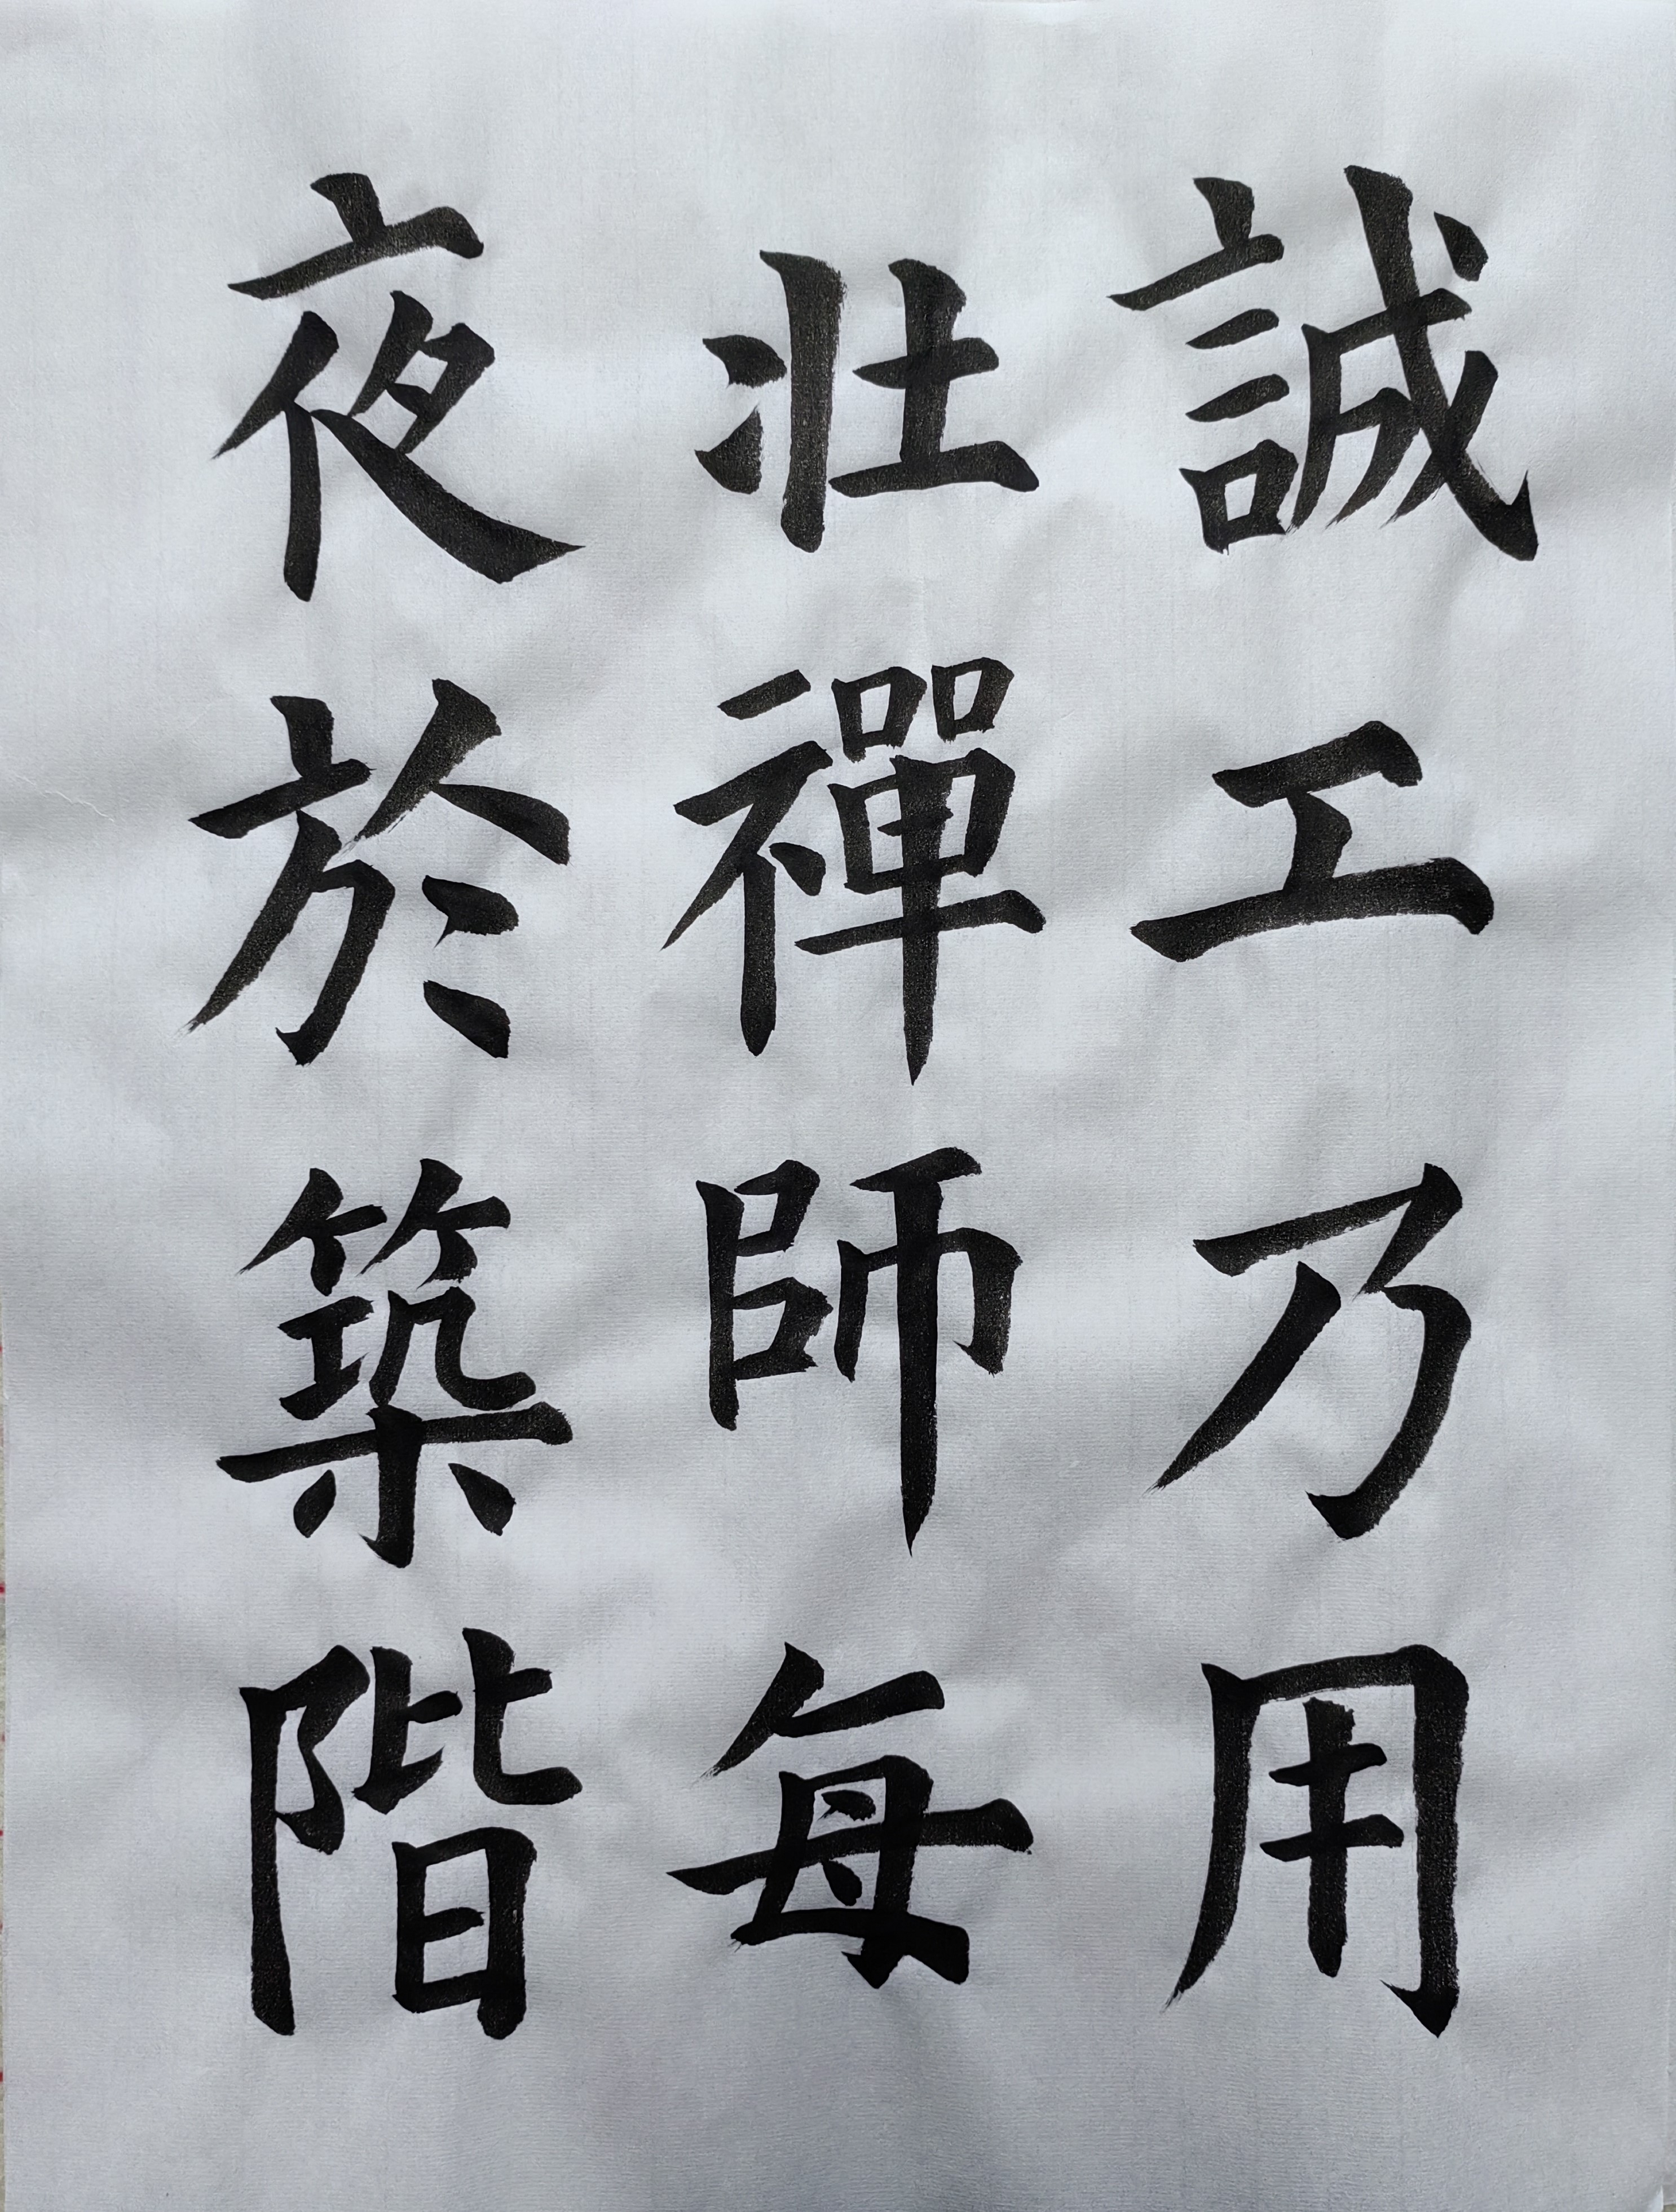 誠工乃用
壯禪師每
夜於築階